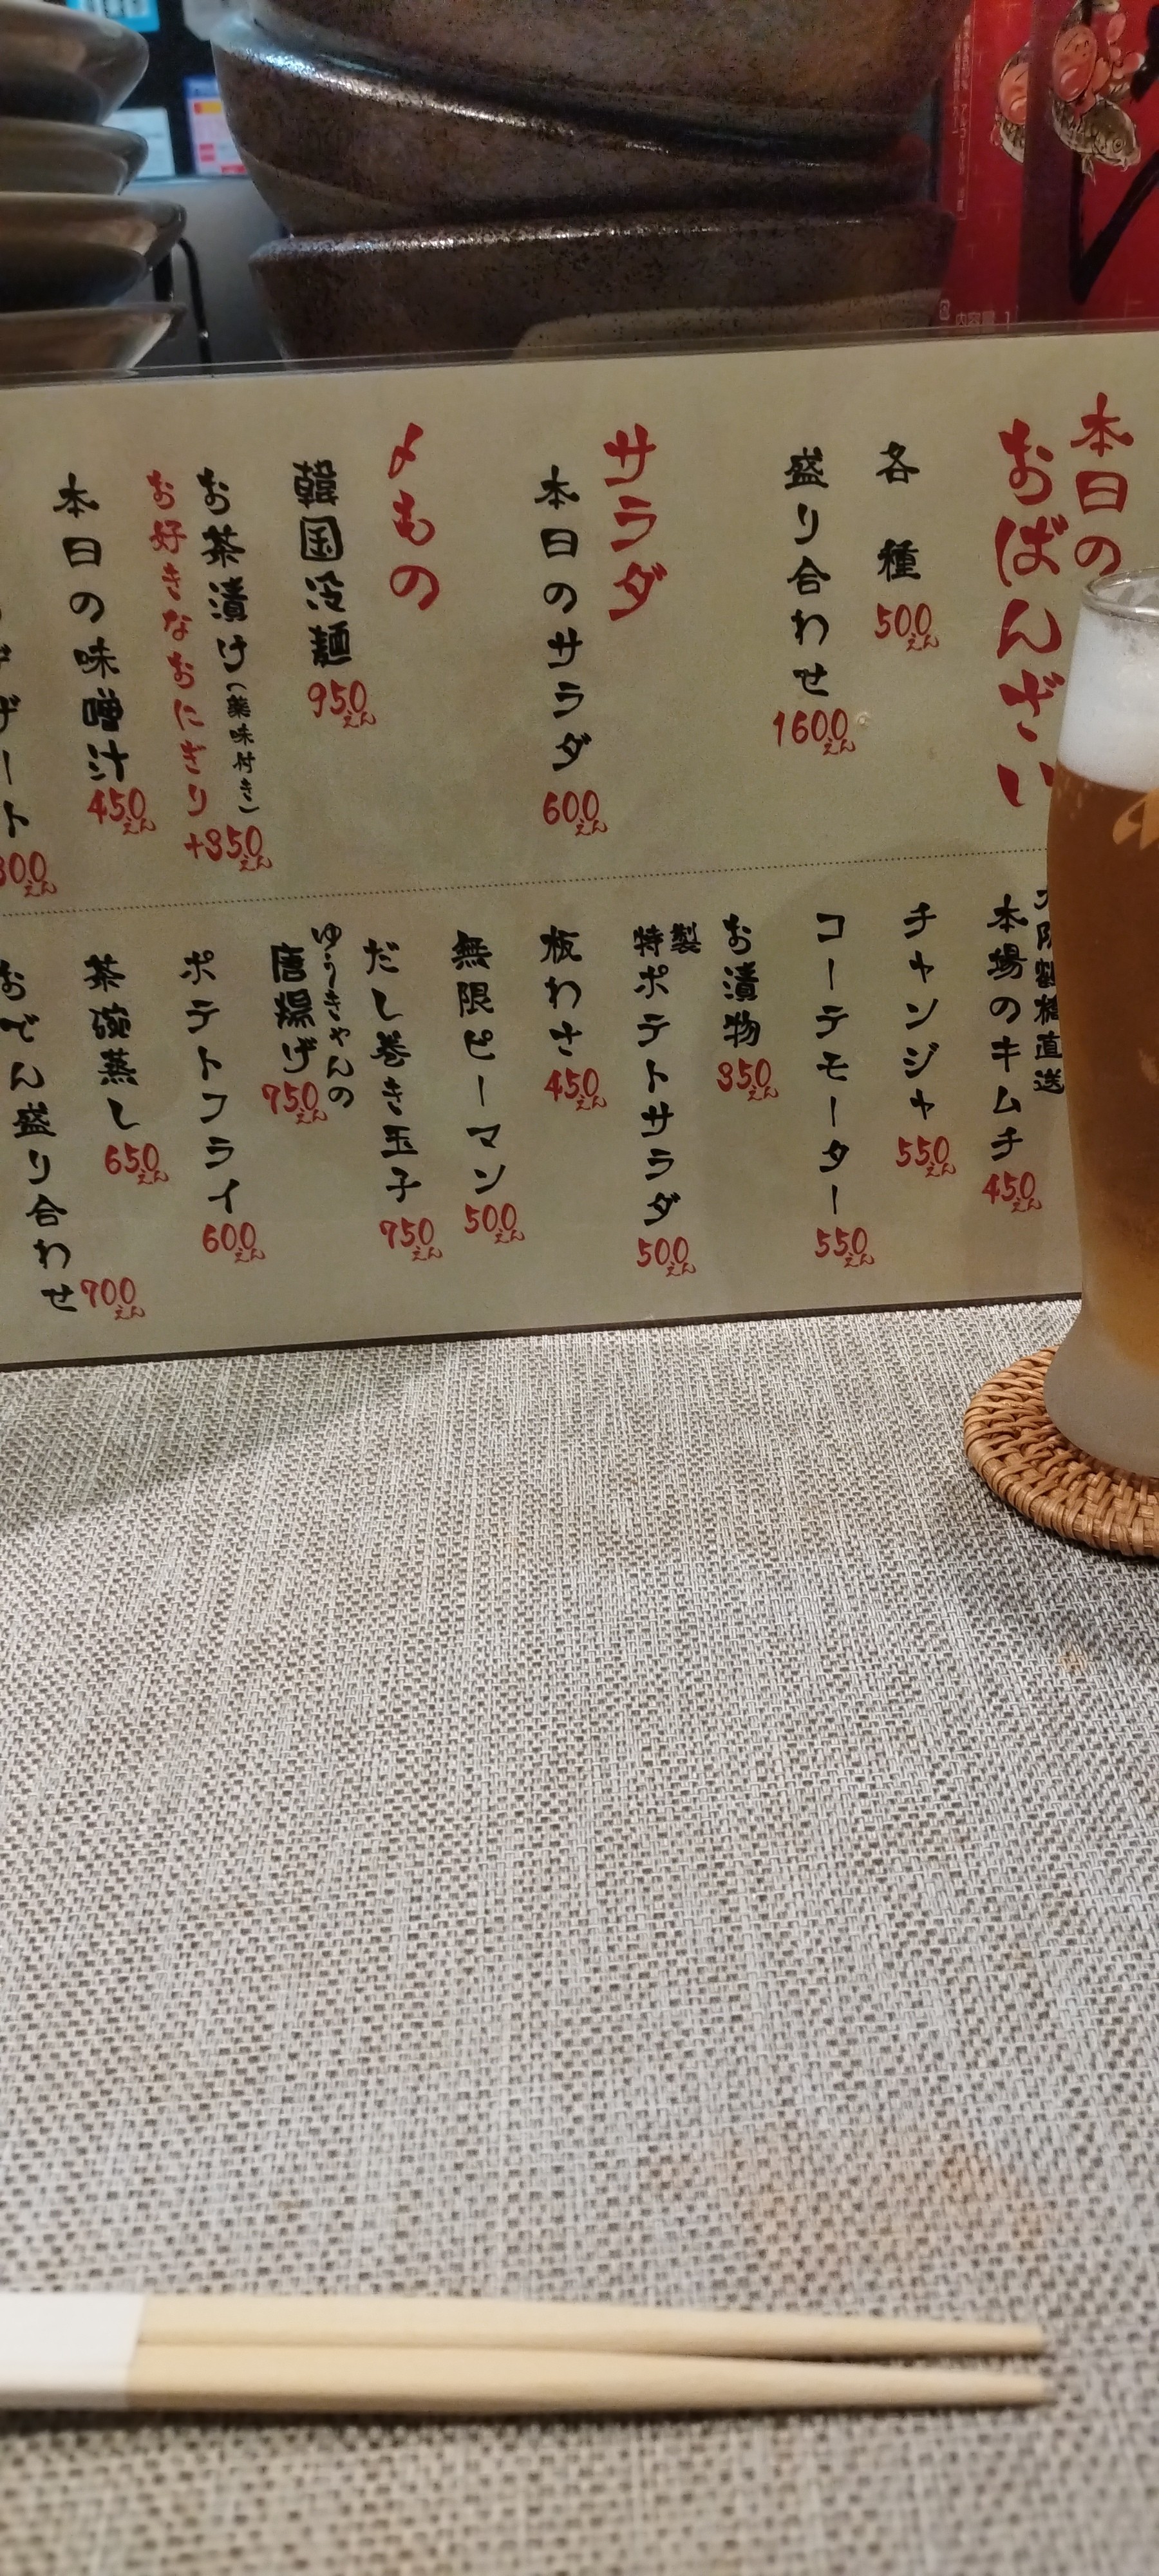 本日の
おばんざい
各種 500えん
盛り合わせ 1600えん
サラダ
本日のサラダ 600えん
〆もの
韓国冷麺 950えん
お茶漬け(薬味付き)
お好きなおにぎり +350えん
本日の味噌汁 450えん
デザート 300えん
直送
本場のキムチ 450えん
チャンジャ 550えん
コーテモーター 550えん
お漬物 350えん
特製ポテトサラダ 500えん
板わさ 450えん
無限ピーマン 500えん
だし巻き玉子 750えん
ゆうきゃんの
唐揚げ 750えん
ポテトフライ 600えん
茶碗蒸し 650えん
おでん盛り合わせ 700えん
内容量